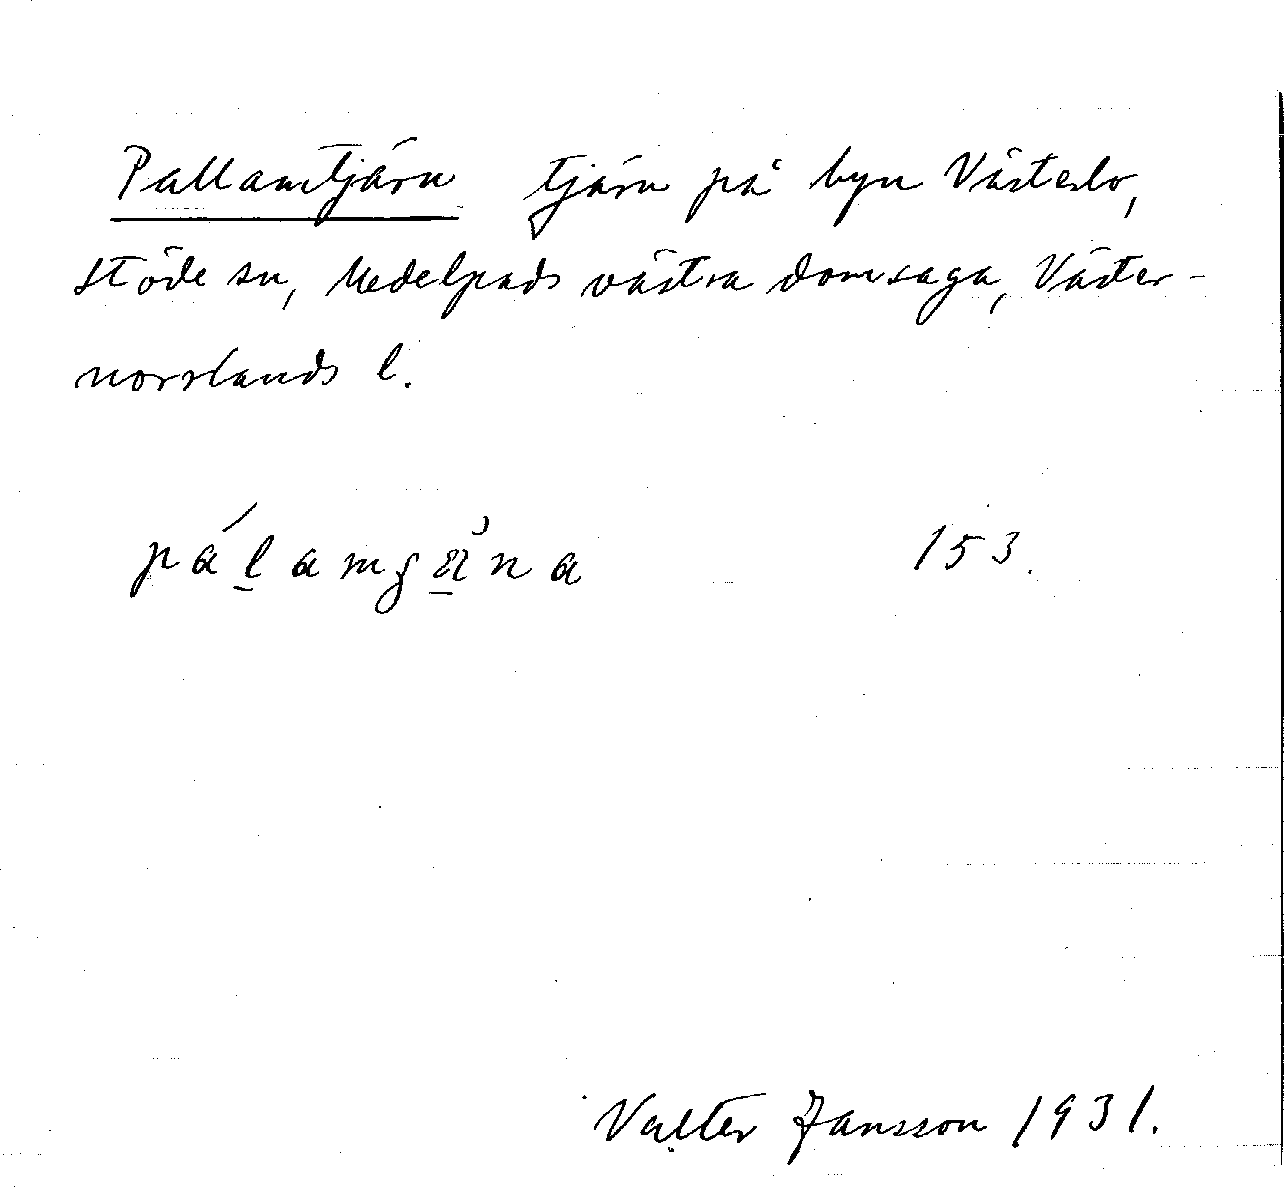 Pallamtjärn tjärn på byn Västerlo,
Stöde sn, Medelpads västra domsaga, Väster-
norrlands l.
153.
Valter Jansson 1931.